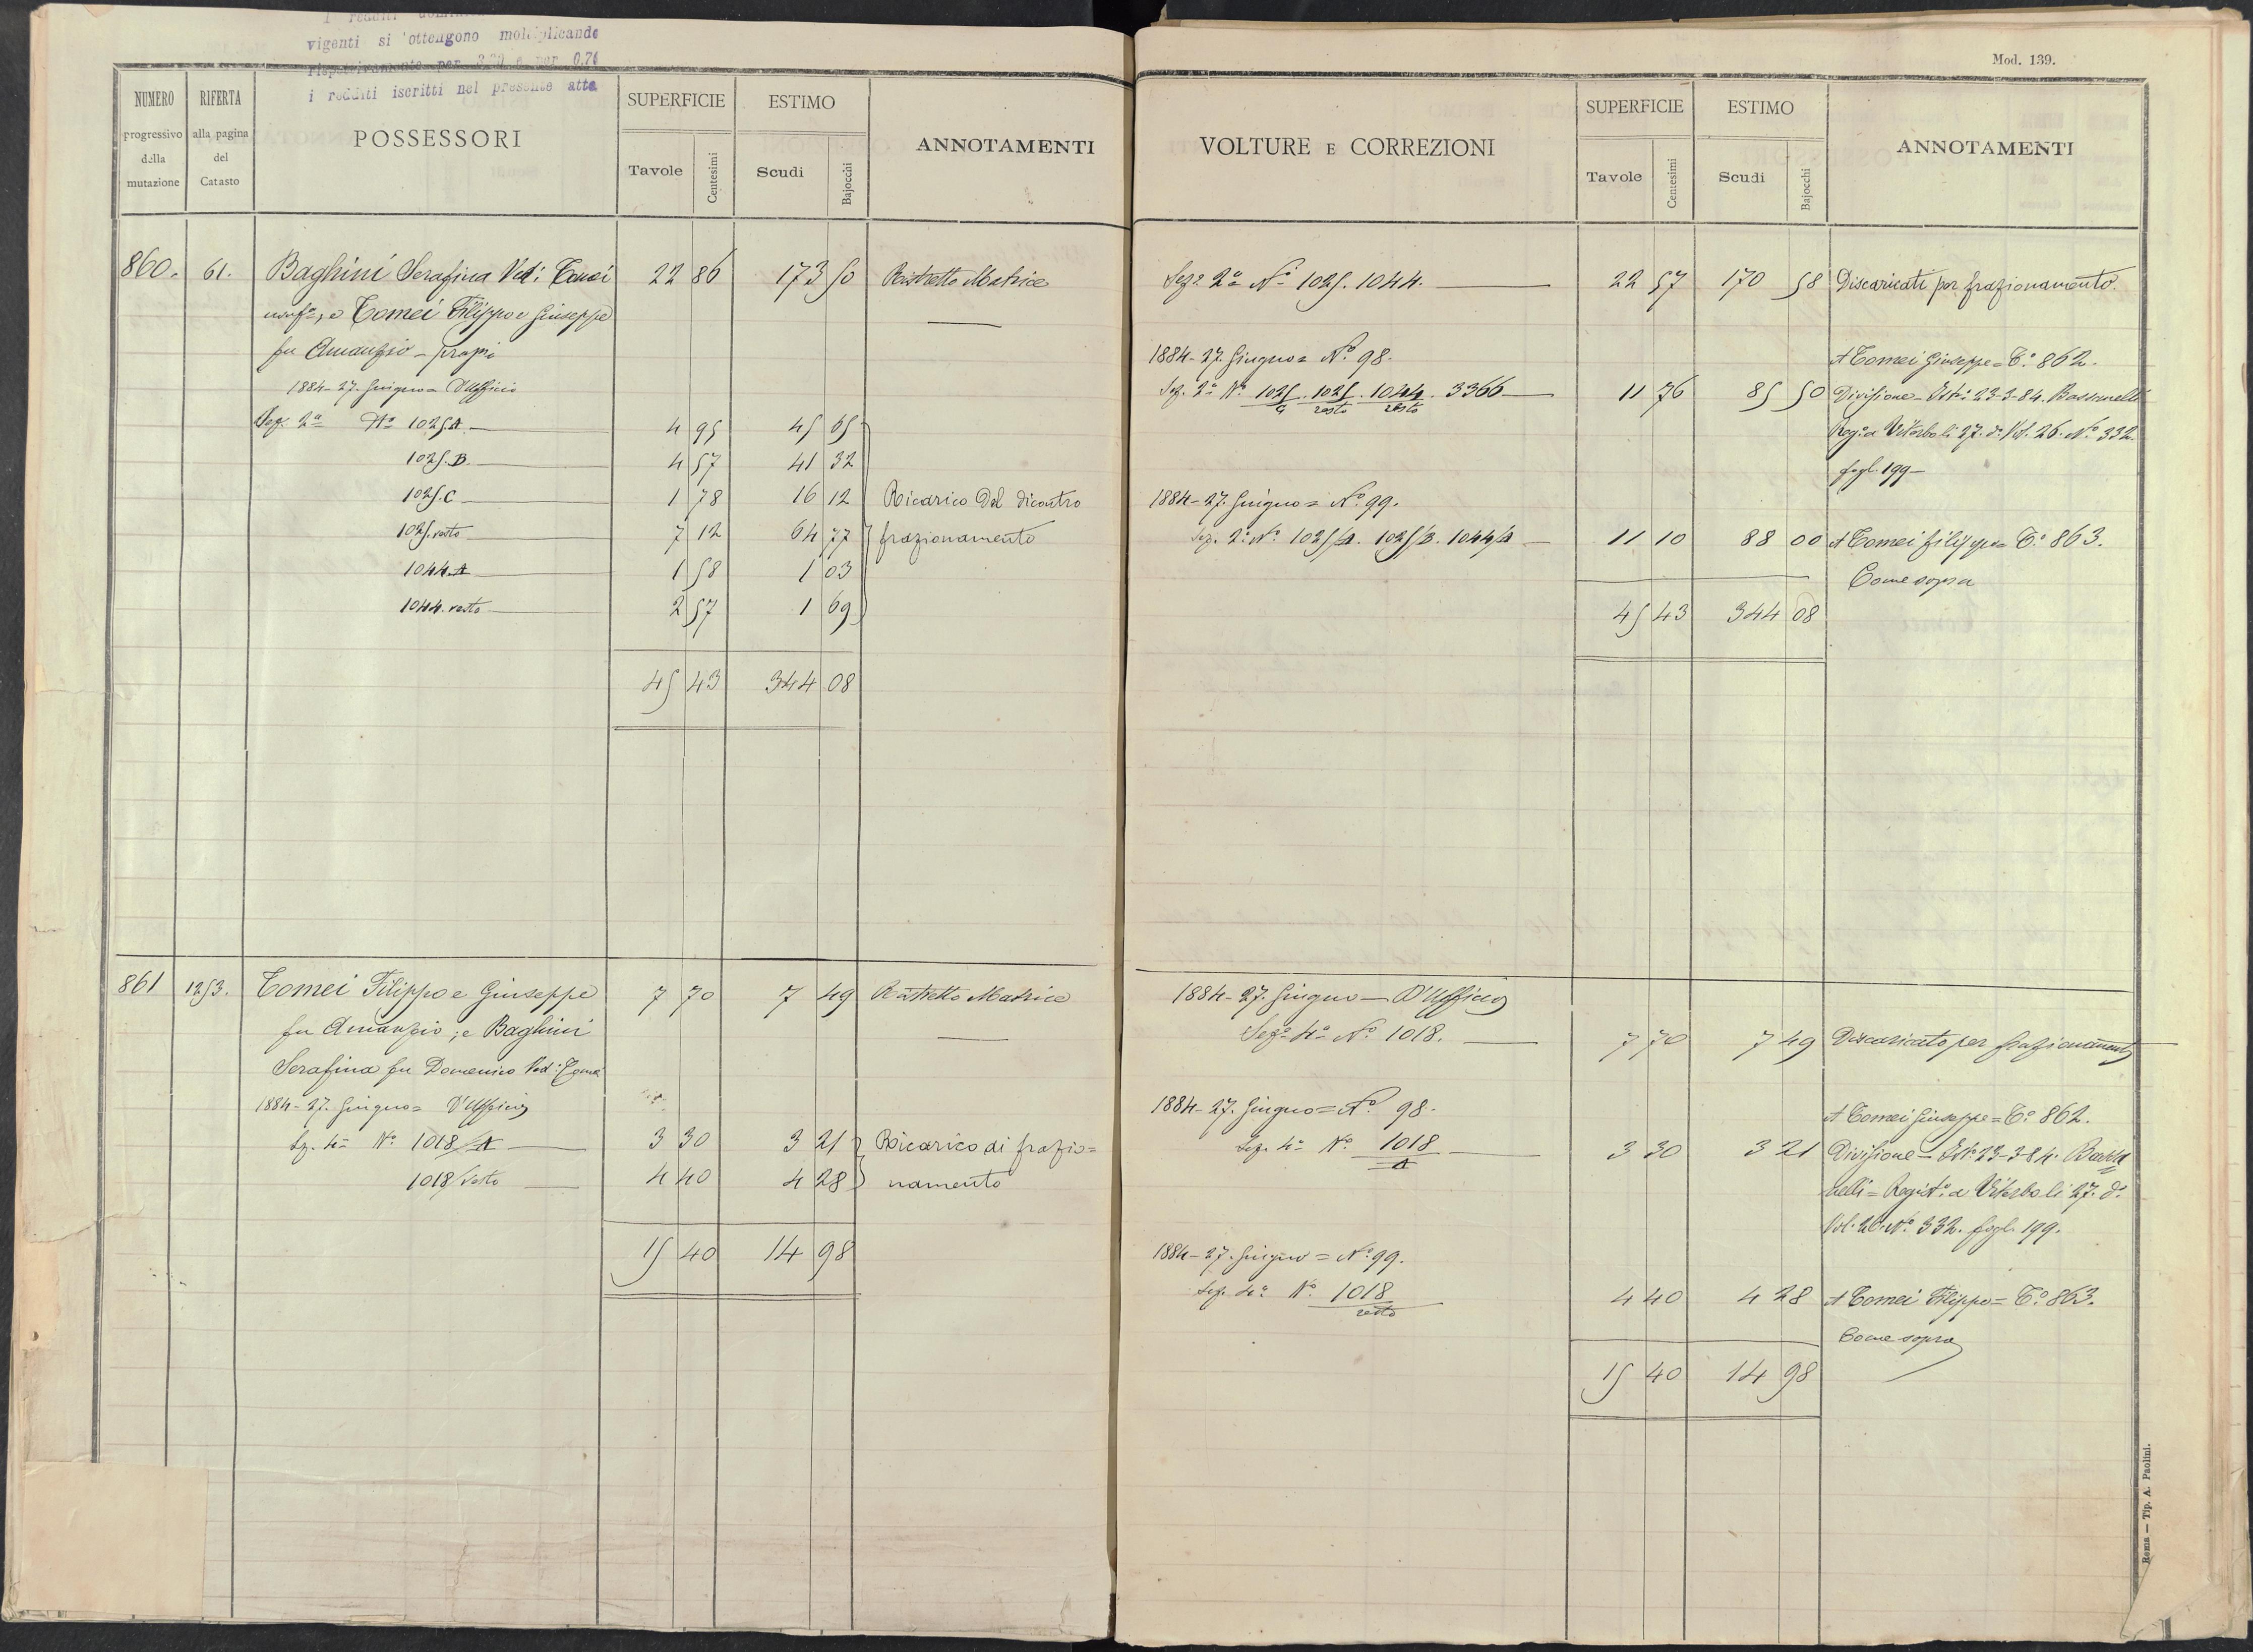 vigenti si ottengono moltiplicando
rispettivamente per 3,20 e per 0,76
i redditi iscritti nel presente atto
NUMERO progressivo della mutazione
RIFERTA alla pagina del Catasto
POSSESSORI
SUPERFICIE
Tavole Centesimi
ESTIMO
Scudi Bajocchi
ANNOTAMENTI
860. 61. Baghini Serafina Ved: Tomei 22 86 173 50 Ristretto Matrice
usuf.a, e Tomei Filippo e Giuseppe
fu Amanzio - propri
1884-27. Giugno = D'Ufficio
Sez. 2a No 1025 A 4 95 45 65
1025. B. 4 57 41 32
1025. C 1 78 16 12 Ricarico del dicontro
1025. resto 7 12 64 77 frazionamento
1044. A 1 58 1 03
1044. resto 2 57 1 69
45 43 344 08
861 1253. Tomei Filippo e Giuseppe 7 70 7 49 Ristretto Matrice
fu Amanzio; e Baghini
Serafina fu Domenico Ved: Tomei
1884-27. Giugno = D'Ufficio
Sez. 4a No 1018/A 3 30 3 21 Ricarico di frazio=
1018/resto 4 40 4 28 namento
15 40 14 98
Mod. 139.
VOLTURE E CORREZIONI
SUPERFICIE
Tavole Centesimi
ESTIMO
Scudi Bajocchi
ANNOTAMENTI
Seze 2a No 1025. 1044. 22 57 170 58 Discaricati per frazionamento.
1884-27. Giugno = No. 98. A Tomei Giuseppe = To. 862.
Sez. 2a No 1025/C. 1025/resto. 1044/resto. 3366 11 76 85 50 Divisione - Isto: 23-3-84. Bassanelli
Rega. a Viterbo li 27. do. Vol. 26. No. 332.
fogl. 199-
1884-27. Giugno = No. 99.
Sez. 2a No 1025/A. 1025/B. 1044/A 11 10 88 00 A Tomei Filippo = To. 863.
Come sopra
45 43 344 08
1884-27. Giugno - D'Ufficio
Seze 4a No 1018. 7 70 7 49 Discaricato per frazionamento
1884-27. Giugno = No. 98. A Tomei Giuseppe = To. 862.
Sez. 4a No 1018/A 3 30 3 21 Divisione - Isto 23-3-84. Bassa
nelli = Registo: a Viterbo li 27. do.
Vol. 26. No. 332. fogl. 199.
1884-27. Giugno = No. 99.
Sez. 4a No. 1018/resto 4 40 4 28 A Tomei Filippo = To. 863.
Come sopra
15 40 14 98
Roma — Tip. A. Paolini.